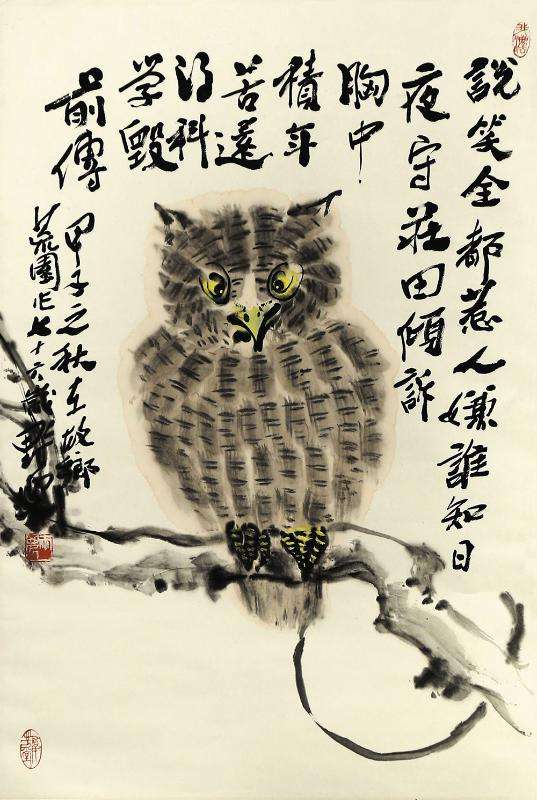 說笑全都惹人嫌誰知日
夜守莊田傾訴
胸中
積年
苦還
得科
学毀
前傳
甲子之秋在故鄉
園作七十六歲